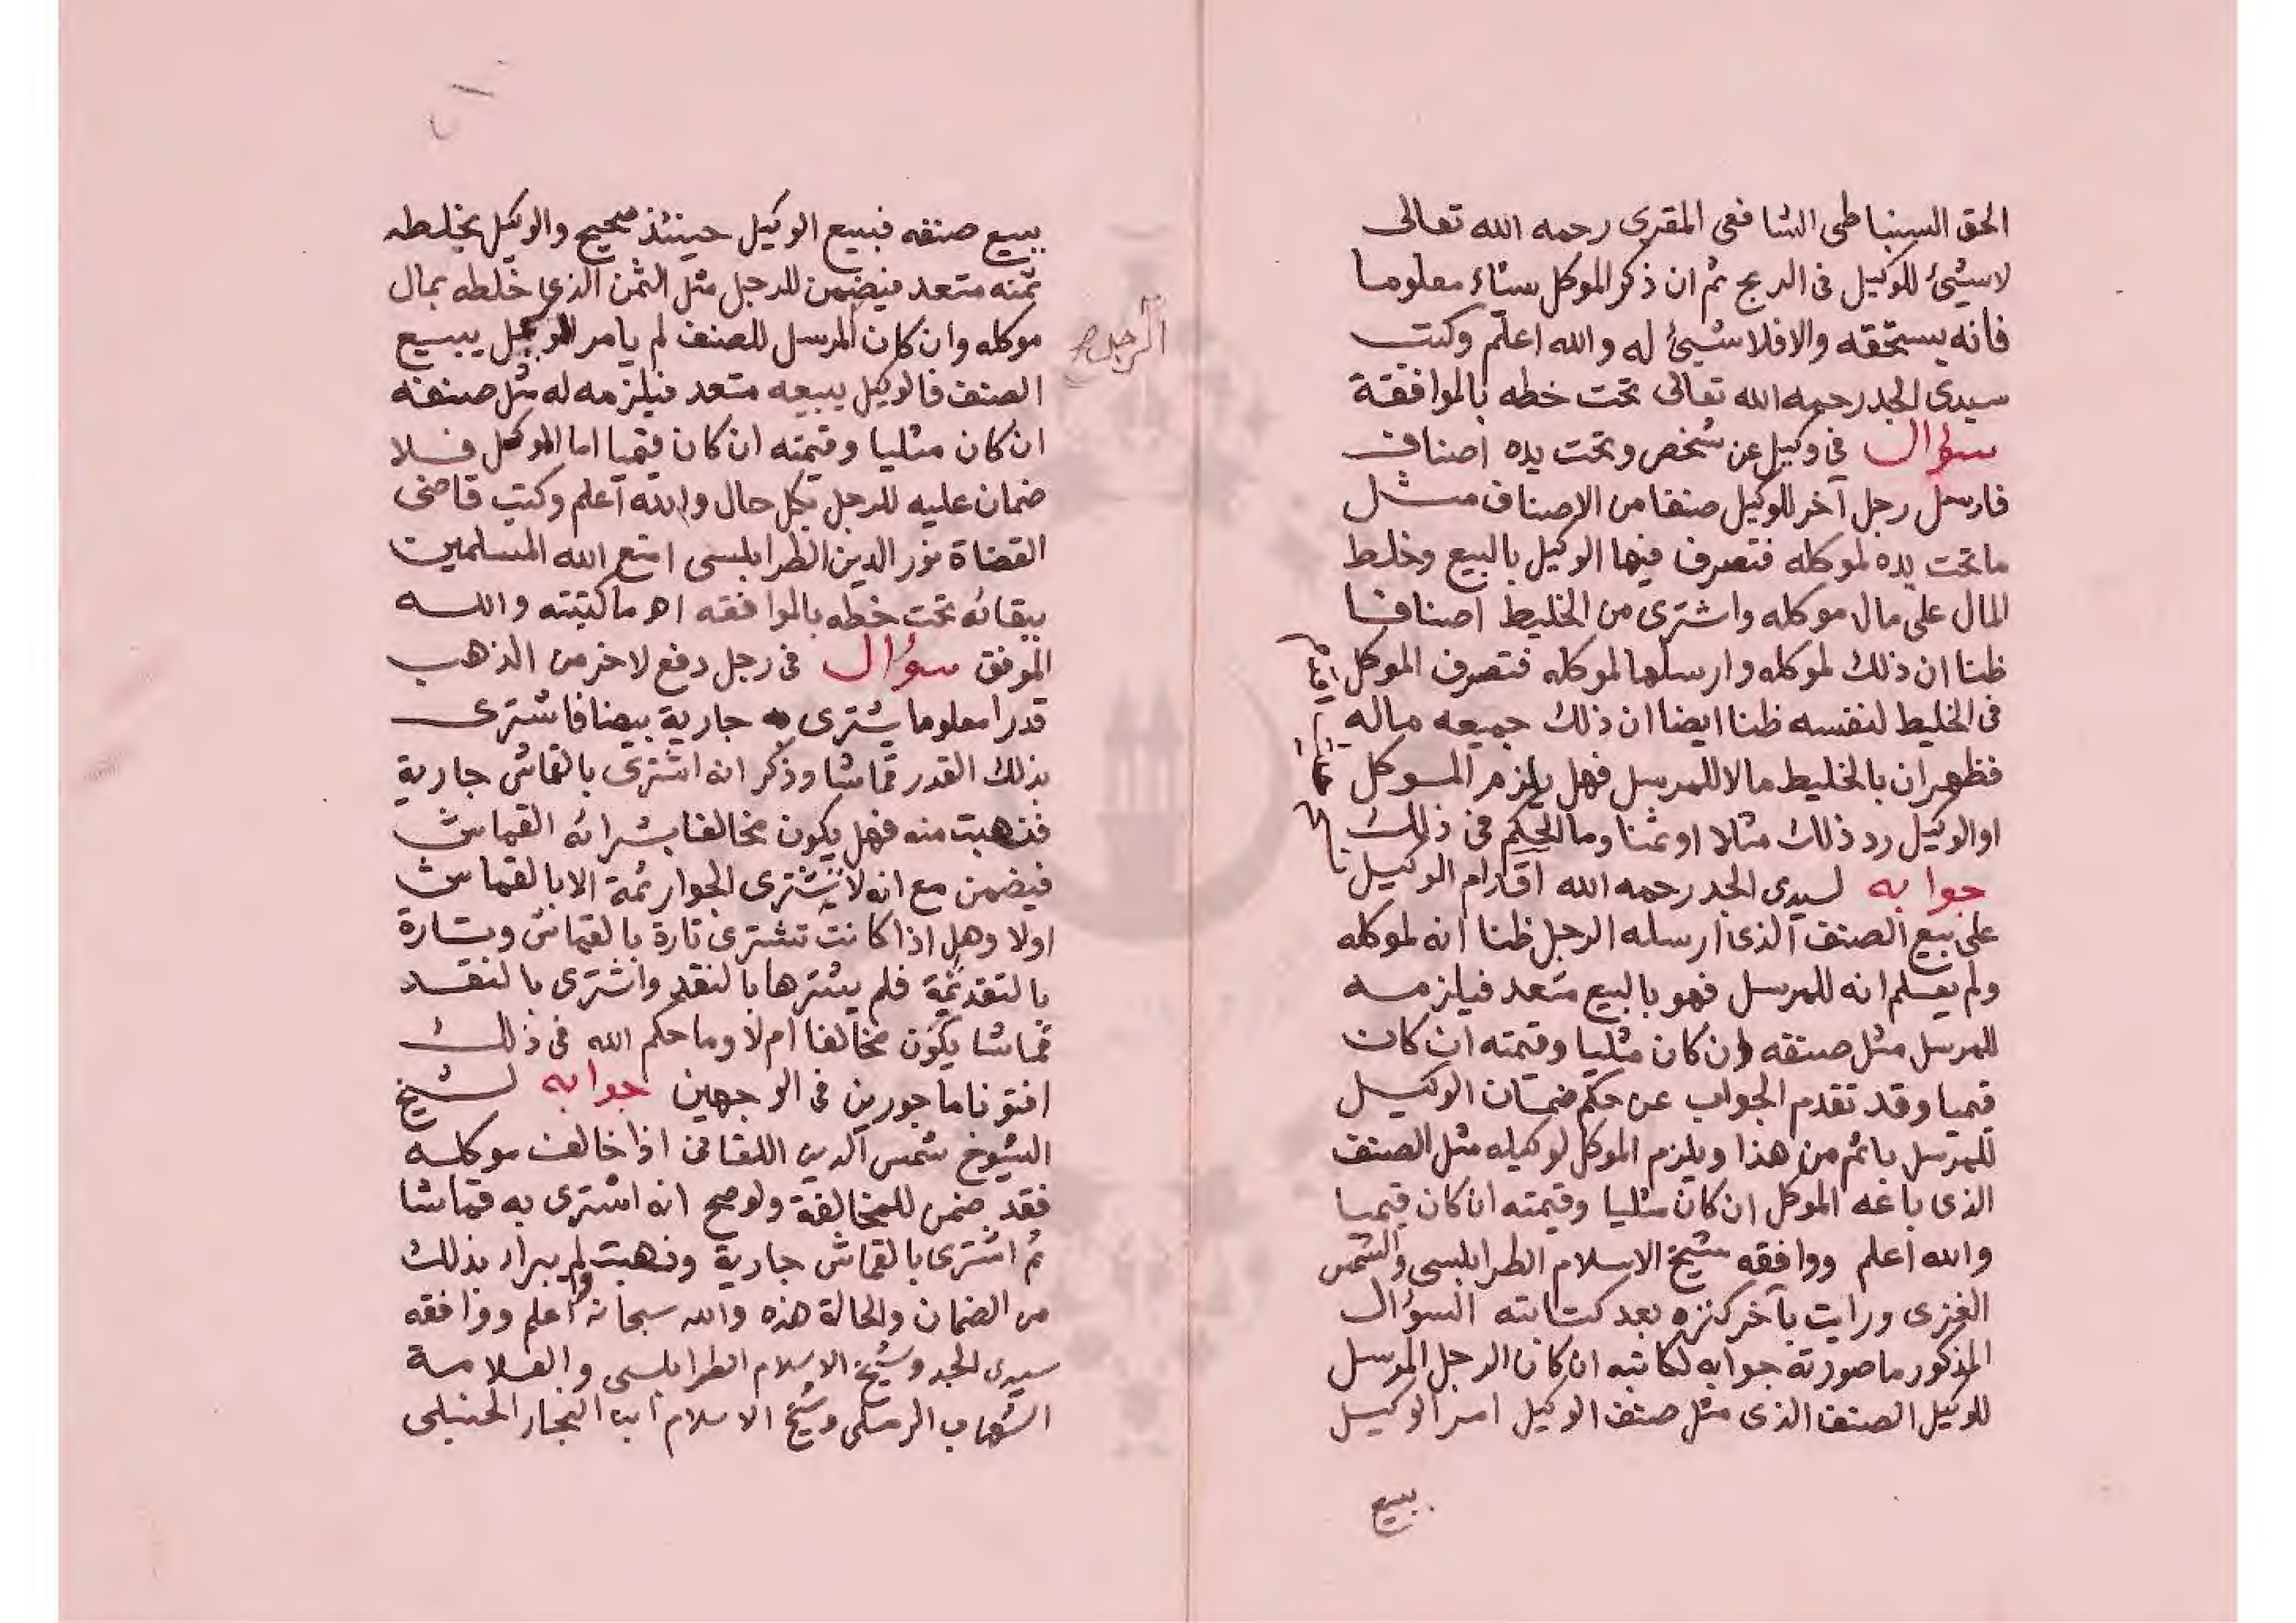 الحق السنباطى الشافعى المقرى رحمه الله تعالى
لا شيئ للوكيل فى الربح ثم ان ذكر الموكل شئاء معلوما
فانه يستحقه والا فلا شيئ له والله اعلم وكتب
سيدى الجد رحمه الله تعالى تحت خطه بالموافقة
سؤال فى وكيل عن شخص وتحت يده اصناف
فارسل رجل آخر للوكيل صنفا من الاصناف مثل
ما تحت يده لموكله فتصرف فيها الوكيل بالبيع وخلط
المال على مال موكله واشترى من الخليط اصنافا
ظنا ان ذلك لموكله وارسلها لموكله فتصرف الموكل
فى الخليط لنفسه ظنا ايضا ان ذلك جميعه ماله
فظهر ان بالخليط مالا للمرسل فهل يلزم الموكل
او الوكيل رد ذلك مثلا او ثمنا وما الحكم فى ذلك
جوابه لسيدى الجد رحمه الله اقدام الوكيل
على بيع الصنف الذى ارسله الرجل ظنا انه لموكله
ولم يعلم انه للمرسل فهو بالبيع متعد فيلزمه
للمرسل مثل صنفه ان كان مثليا وقيمته ان كان
قيميا وقد تقدم الجواب عن حكم ضمان الوكيل
للمرسل باتم من هذا ويلزم الموكل لوكيله مثل الصنف
الذى باعه الموكل ان كان مثليا وقيمته ان كان قيميا
والله اعلم ووافقه شيخ الاسلام الطرابلسى والشمس
الغزى ورايت بآخر كنزه بعد كتابته السؤال
المذكور ما صورته جوابه لكاتبه ان كان الرجل المرسل
للوكيل الصنف الذى مثل صنف الوكيل امر الوكيل
ببيع
ببيع صنفه فبيع الوكيل حينئذ صحيح والوكيل بخلطه
ثمنه متعد فيضمن للرجل مثل الثمن الذى خلطه بمال
موكله وان كان المرسل للصنف لم يامر الوكيل ببيع
الرجل
الصنف فالوكيل ببيعه متعد فيلزمه له مثل صنفه
ان كان مثليا وقيمته ان كان قيميا اما الموكل فلا
ضمان عليه للرجل بكل حال والله اعلم وكتب قاضى
القضاة نور الدين الطرابلسى امتع الله المسلمين
ببقائه تحت خطه بالموافقه اهـ ما كتبته والله
الموفق سؤال فى رجل دفع لاخر من الذهب
قدرا معلوما يشترى به جارية بيضا فاشترى
بذلك القدر قماشا وذكر انه اشترى بالقماش جارية
فذهبت منه فهل يكون مخالفا بشرائه القماش
فيضمن مع انه لا تشترى الجوار ثمة الا بالقماش
اولا وهل اذا كانت تشترى تارة بالقماش وتارة
بالنقد ثمة فلم يشترها بالنقد واشترى بالنقد
قماشا يكون مخالفا ام لا وما حكم الله فى ذلك
افتونا ماجورين فى الوجهين جوابه لشيخ
الشيوخ شمس الدين اللقانى اذا خالف موكله
فقد ضمن للمخالفة ولو صح انه اشترى به قماشا
ثم اشترى بالقماش جارية وذهبت ولم يبرا بذلك
من الضمان والحالة هذه والله سبحانه اعلم ووافقه
سيدى الجد وشيخ الاسلام الطرابلسى والعلامة
الشهاب الرملى وشيخ الاسلام ابن النجار الحنبلى